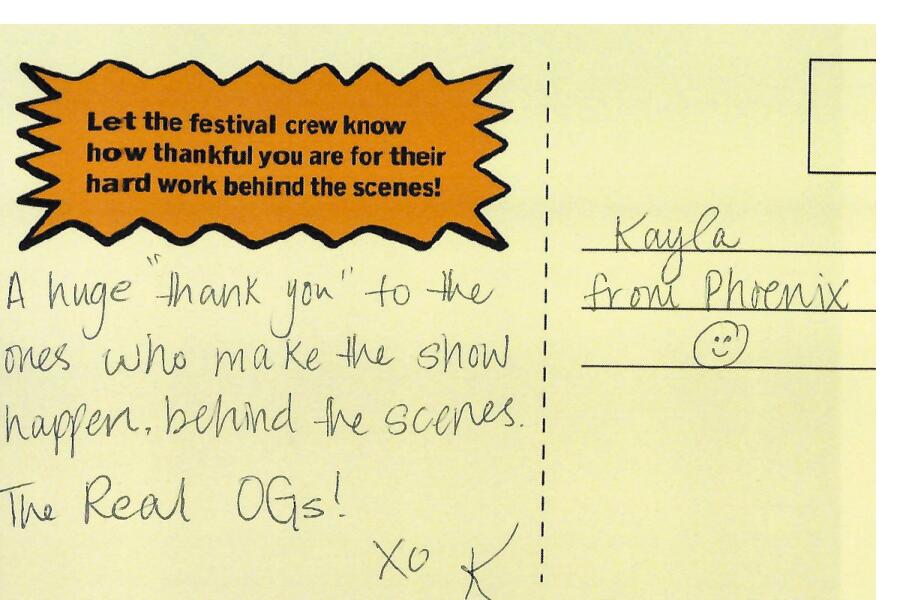 Let the festival crew know
how thankful you are for their
hard work behind the scenes!
A huge "thank you" to the
ones who make the show
happen, behind the scenes.
The Real OGs!
XO K
Kayla
from Phoenix